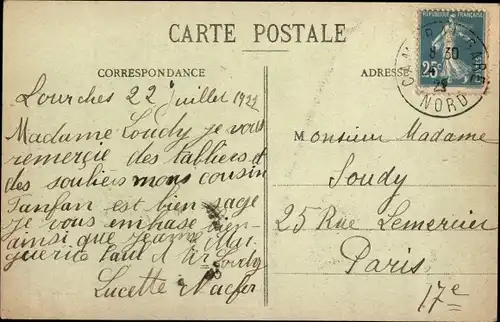 CARTE POSTALE
REPUBLIQUE FRANÇAISE
25c
8 30
NORD
CORRESPONDANCE
ADRESSE
Lourches 22 Juillet 1922
Madame Soudy je vous
remercie des tabliers et
des souliers mons cousin
Fanfan est bien sage
je vous embase bien
ainsi que jeanne Mar
guerite Paul et Mr Soudy
Lucette
Monsieur Madame
Soudy
25 Rue Lemercier
Paris
17e